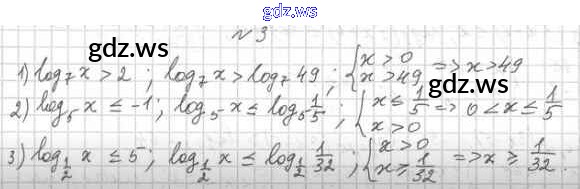 gdz.ws
№3
gdz.ws
1) log₇ x > 2 ; log₇ x > log₇ 49 ; { x > 0 x > 49 => x > 49
2) log₅ x ≤ -1 ; log₅ x ≤ log₅ 1/5 ; { x ≤ 1/5 x > 0 => 0 < x ≤ 1/5
3) log_{1/2} x ≤ 5 ; log_{1/2} x ≤ log_{1/2} 1/32 ; { x > 0 x ≥ 1/32 => x ≥ 1/32 .
gdz.ws gdz.ws